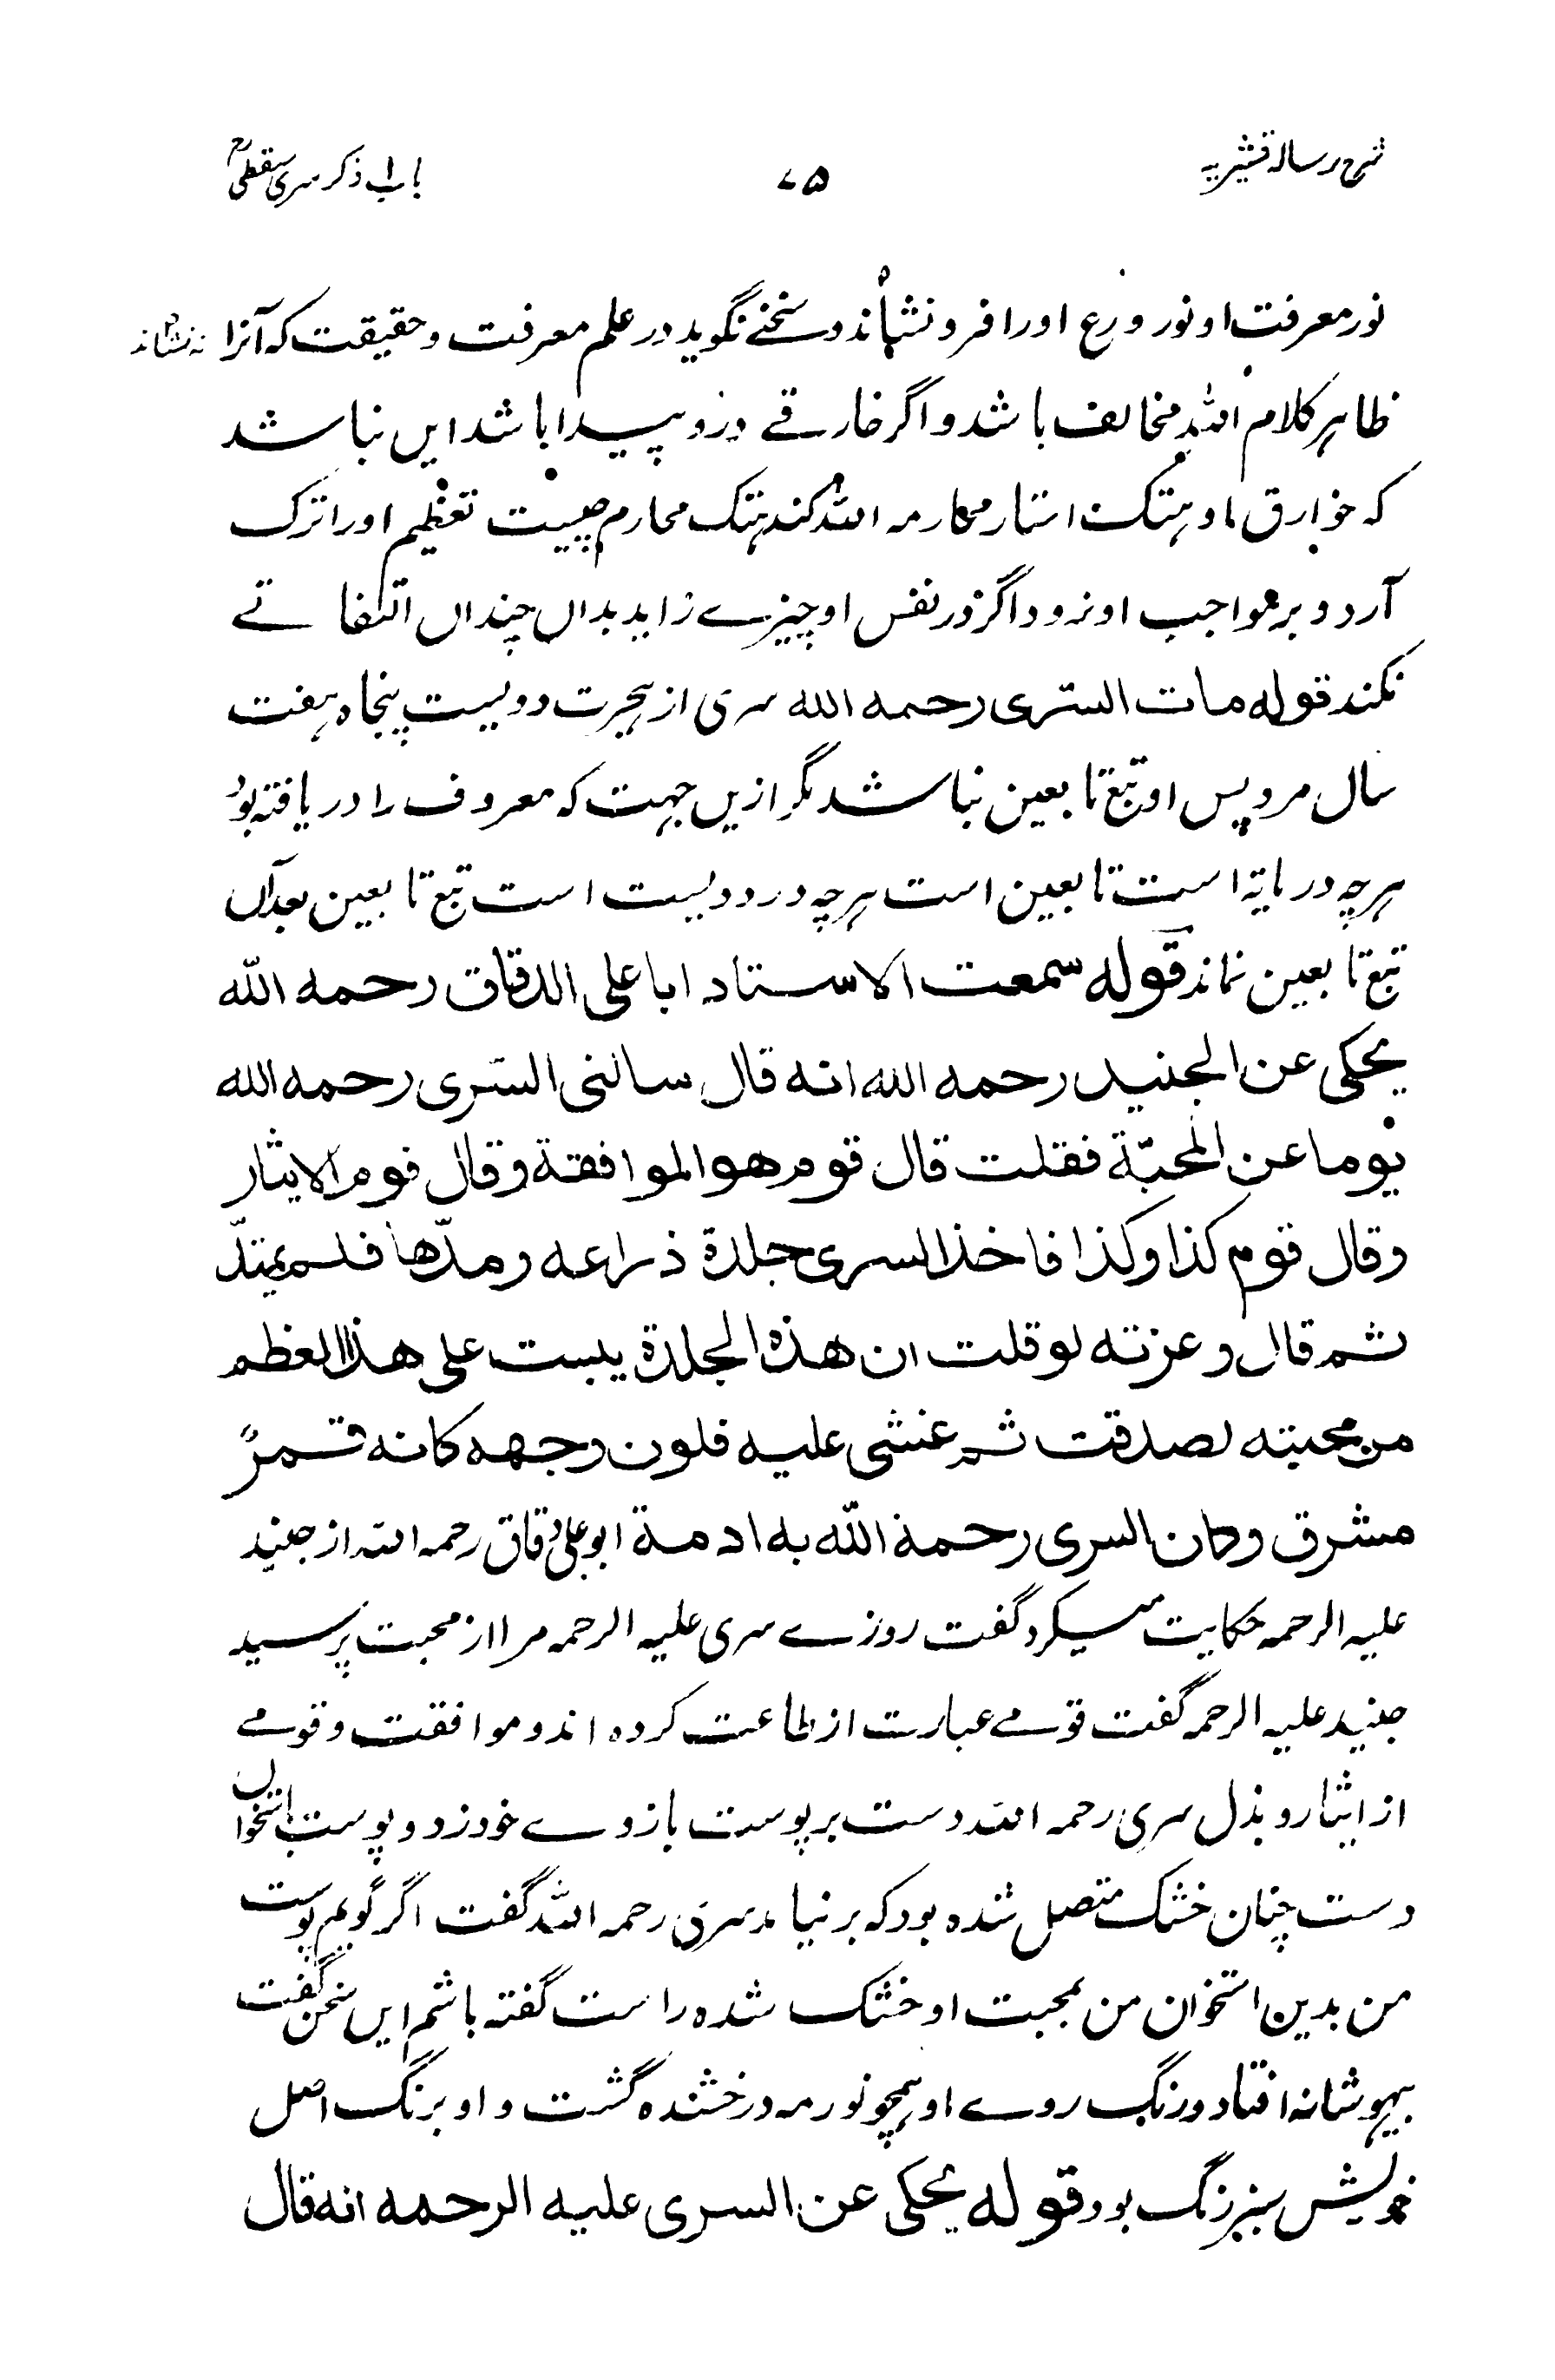 شرح رسالہ قشیریہ ۷۵ باب ا ذکر سری سقطیؒ
نور معرفت او نور ورع اورا فرو نشاند و سخنے نگوید در علم معرفت و حقیقت کہ آنرا
نہ نشاند
ظاہر کلام اللہ مخالف باشد و اگر خارقے درو پیدا باشد ایں نباشد
کہ خوارق او ہتک استار محارمہ اللہ کند ہتک محارم چیست تعظیم اورا ترک
آرد و بر مواجب او نرود اگر در نفس او چیزے زاید بداں چنداں التفاتے
نکند قولہ مات السّری رحمہ اللہ سری از ہجرت دویست پنجاہ ہفت
سال مرد پس او تبع تابعین نباشد مگر ازیں جہت کہ معروف را دریافتہ بود
ہرچہ در مایۃ است تابعین است ہرچہ در دویست است تبع تابعین بعد آں
تبع تابعین نماند قولہ سمعت الاستاد ابا علی الدقاق رحمہ اللّٰہ
یحکی عن الجنید رحمہ اللہ انہ قال سالنی السّری رحمہ اللہ
یوما عن المحبّۃ فقلت قال قوم ھو الموافقۃ و قال قوم الایثار
وقال قوم کذا وکذا فاخذ السری جلدۃ ذراعہ ومدّھا فلم یمتدّ
ثم قال وعزتہ لو قلت ان ھذہ الجلدۃ یبست علی ھذا العظم
من محبتہ لصدقت ثم غشی علیہ فلون وجہہ کانہ قمرٌ
مشرق وکان السری رحمۃ اللّٰہ بہ ادمۃ ابو علی دقاق رحمہ اللہ از جنید
علیہ الرحمہ حکایت میکرد گفت روزے سری علیہ الرحمہ مرا از محبت پرسید
جنید علیہ الرحمہ گفت قومے عبارت از طاعت کردہ اند و موافقت و قومے
از ایثار و بذل سری رحمہ اللہ دست بر پوست بازوے خود زد و پوست باستخواں
دست چنان خشک متصل شدہ بود کہ بر نیامد سری رحمہ اللہ گفت اگر گویم پوست
من بدین استخوان من بمحبت او خشک شدہ راست گفتہ باشم ایں سخن گفت
بیہوشانہ افتاد و رنگ روے او ہمچو نور مہ درخشندہ گشت و او برنگ اصل
خویش سبز رنگ بود قولہ یحکی عن السری علیہ الرحمہ انہ قال